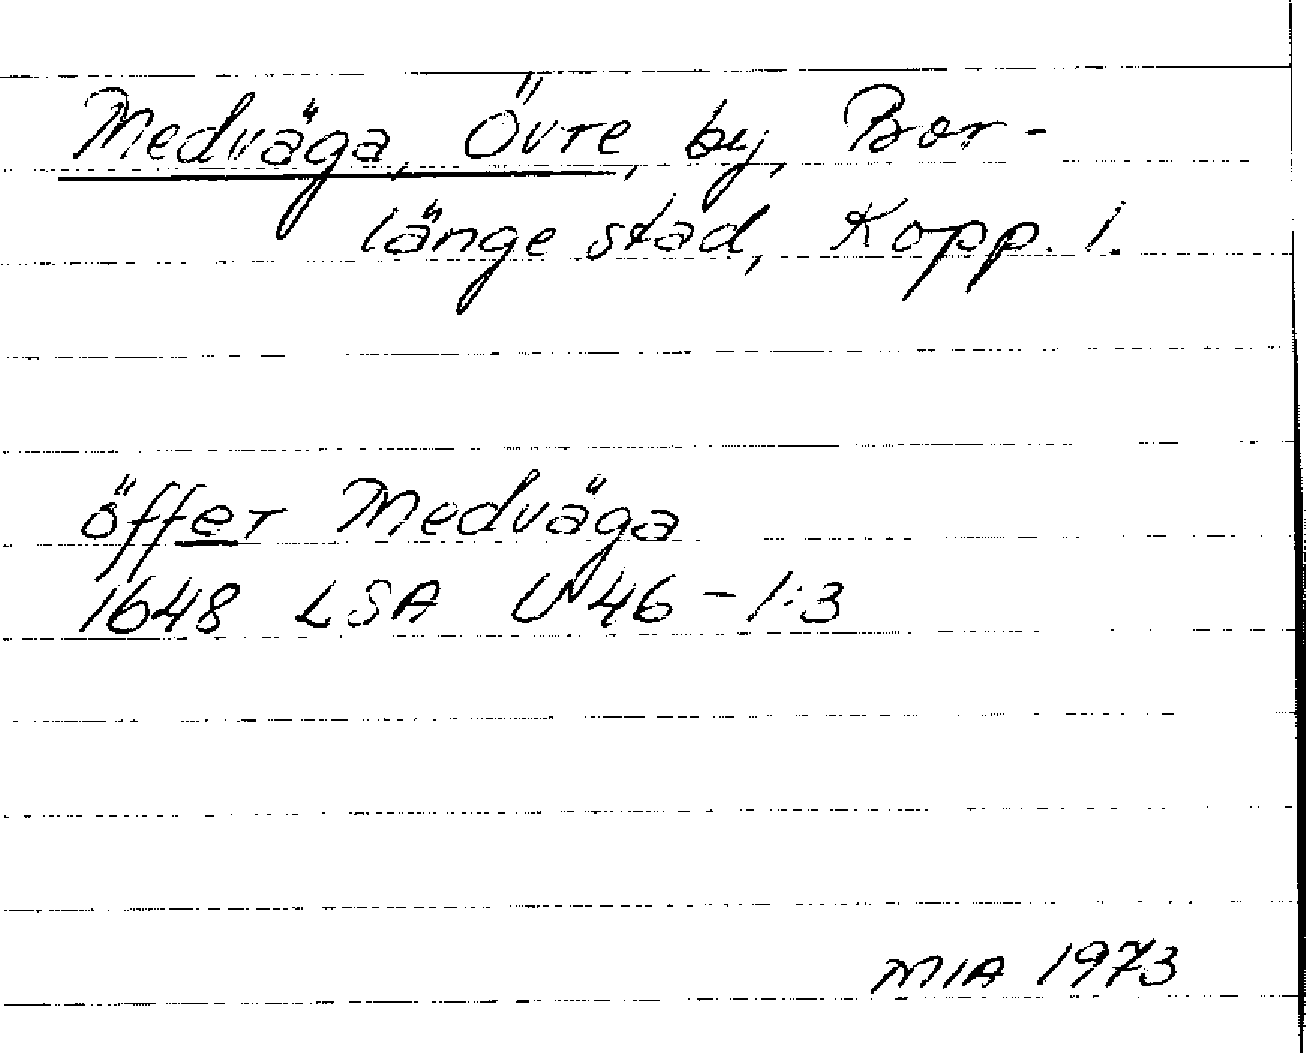 Medväga, Övre, by, Bor-
länge stad, Kopp. l.
öffer Medväga
1648 LSA U 46-1:3
MIA 1973